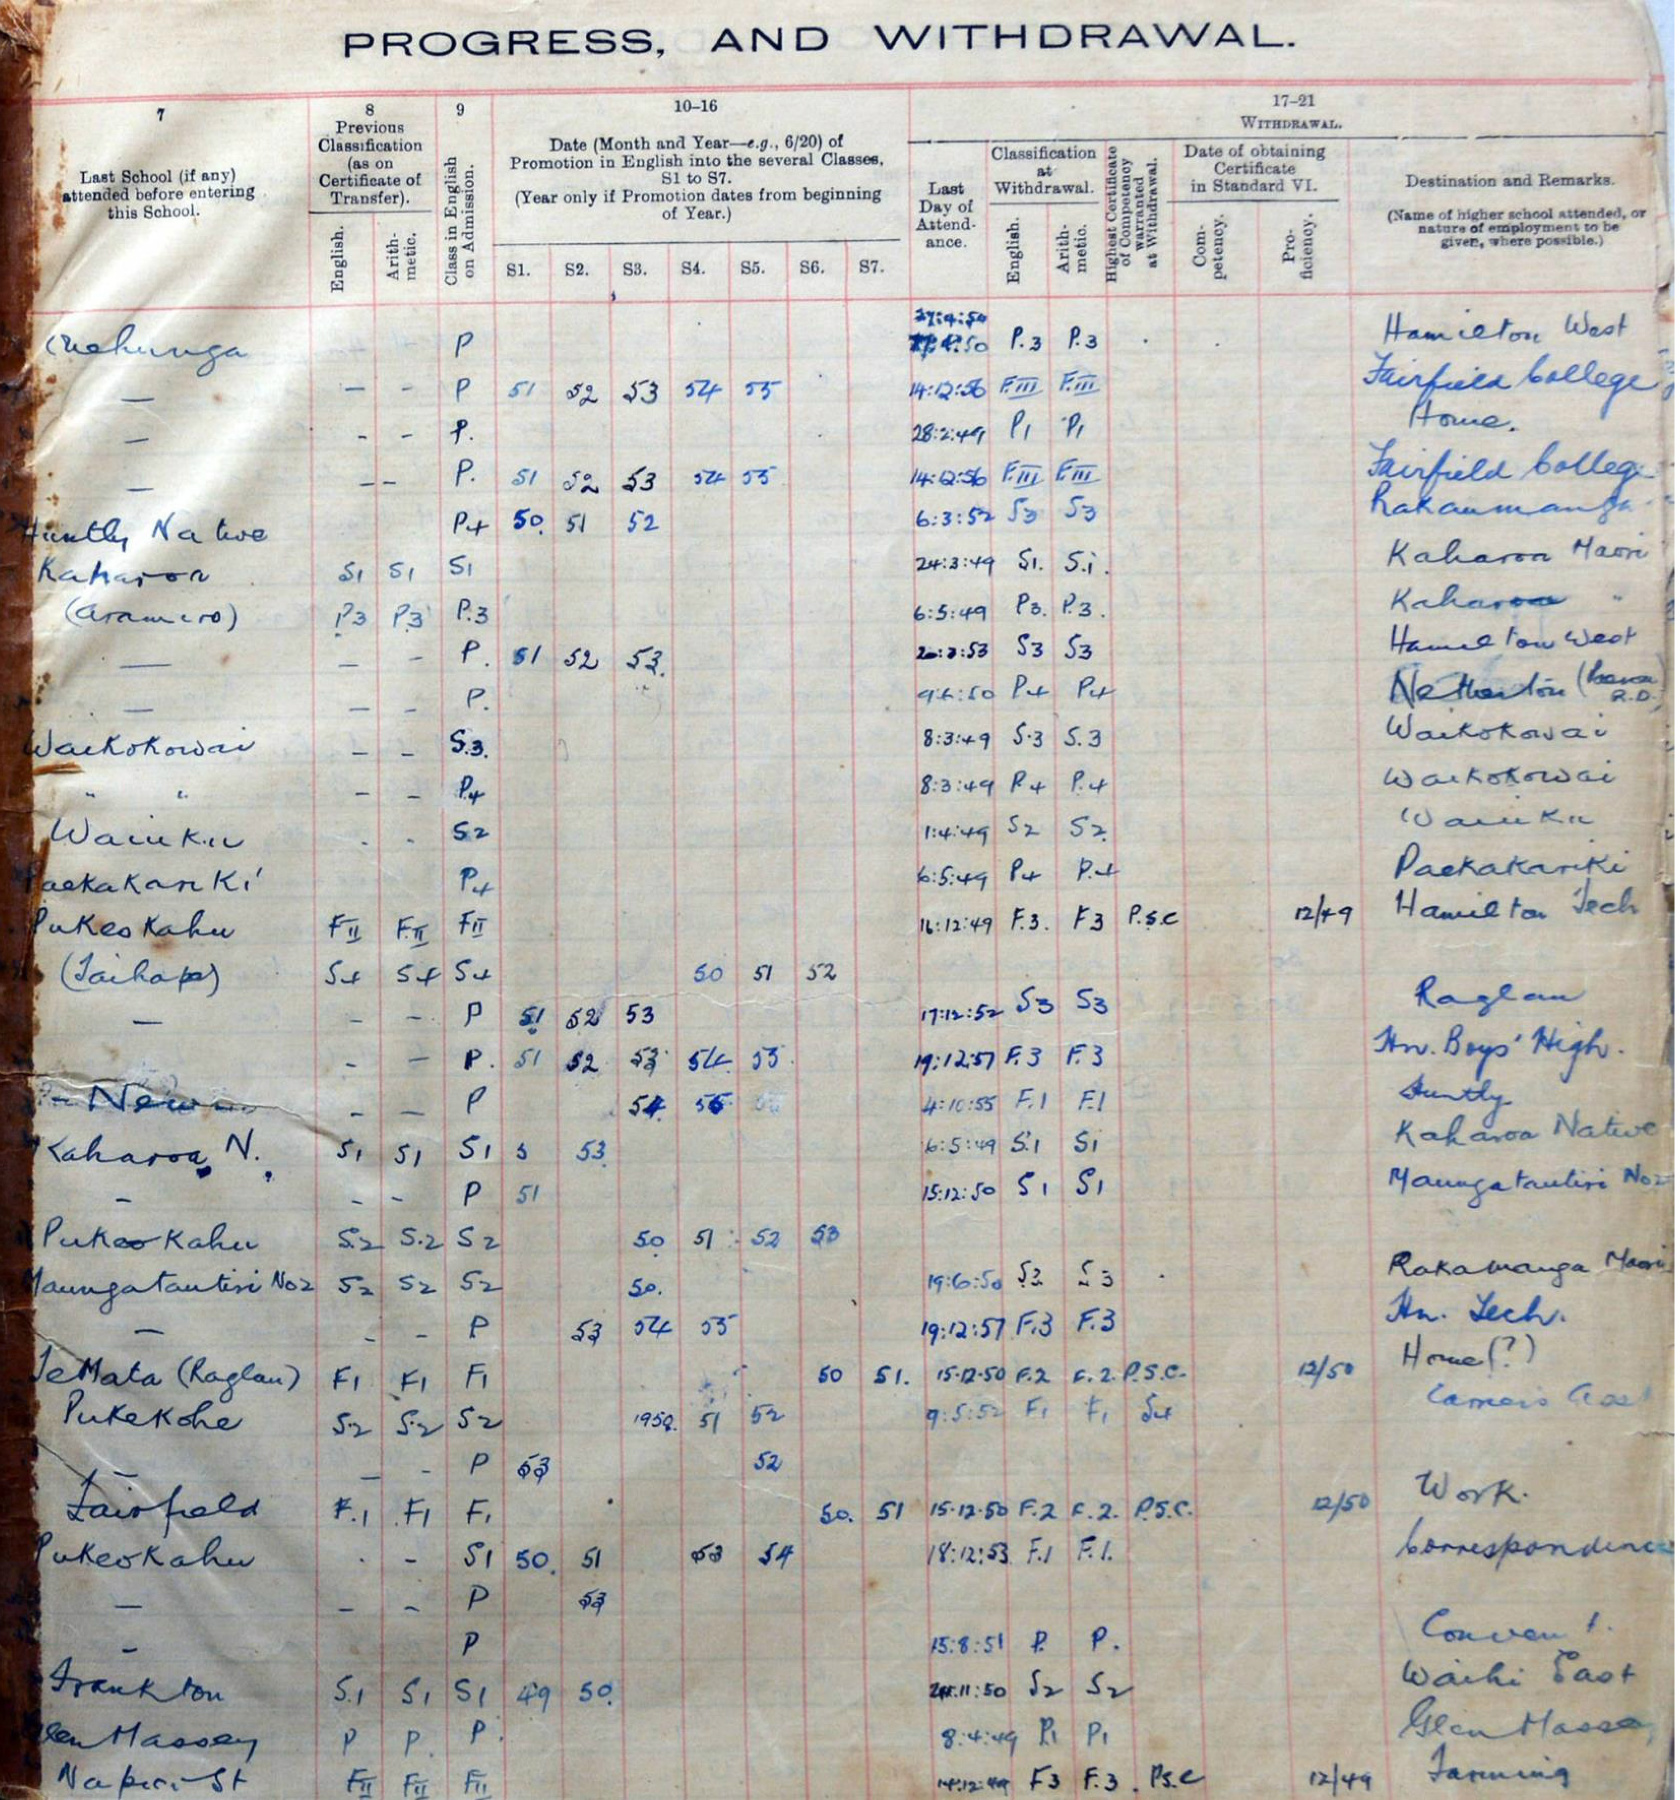 PROGRESS, AND WITHDRAWAL.
7 8 9 10–16 17–21
Last School (if any) attended before entering this School.
Previous Classification (as on Certificate of Transfer).
English. Arithmetic.
Class in English on Admission.
Date (Month and Year—e.g., 6/20) of Promotion in English into the several Classes, S1 to S7.
(Year only if Promotion dates from beginning of Year.)
S1. S2. S3. S4. S5. S6. S7.
WITHDRAWAL.
Last Day of Attendance.
Classification at Withdrawal.
English. Arithmetic.
Highest Certificate of Competency warranted at Withdrawal.
Date of obtaining Certificate in Standard VI.
Competency. Proficiency.
Destination and Remarks.
(Name of higher school attended, or nature of employment to be given, where possible.)
P P.3 P.3 Hamilton West
— — – P 51 52 53 54 55 14:12:56 F.III F.III Fairfield College
— – – P. 28:2:49 P1 P1 Home.
— – – P. 51 52 53 54 55 14:12:56 F.III F.III Fairfield College
Huntly Native P4 50. 51 52 6:3:52 S3 S3
Kaharoa S1 S1 S1 24:3:49 S1. S.1. Kaharoa Maori
(Aramiro) P3 P3 P.3 6:5:49 P3. P.3. Kaharoa "
— — – P. 51 52 53. :53 S3 S3 Hamilton West
— – – P. :50 P4 P4 Netherton
Waikokowai – – S.3. 8:3:49 S.3 S.3 Waikokowai
" " – – P.4 8:3:49 P.4 P.4 Waikokowai
Waiuku . . S2 1:4:49 S2 S2 Waiuku
Paekakariki P4 6:5:49 P4 P.4 Paekakariki
Pukeokahu FII F.II FII 16:12:49 F.3. F3 P.S.C 12/49 Hamilton Tech
(Taihape) S4 S4 S4 50 51 52
— – – P 51 52 53 17:12:52 S3 S3 Raglan
– — P. 51 52 53 54. 55. 19:12:57 F.3 F.3 Hn. Boys' High.
– — P 54 4:10:55 F.1 F.1 Huntly
Kaharoa N. S1 S1 S1 53 6:5:49 S.1 S1 Kaharoa Native
– – – P 51 15:12:50 S1 S1 Maungatautiri No2
Pukeokahu S.2 S.2 S2 50 51 52 53
Maungatautiri No2 S2 S2 S2 50. 19:6:50 S3 S3 Rakamanga Maori
— – – P 53 54 55 19:12:57 F.3 F.3 Hn. Tech.
Te Mata (Raglan) F1 F1 F1 50 51. 15·12·50 F.2 F.2. P.S.C. 12/50 Home(?)
Pukekohe S2 S.2 S2 1950. 51 52 9:5:52 F1 F1 S4
– — – P 53 52
Fairfield F.1 F1 F1 50. 51 15·12·50 F.2 F.2. P.S.C. 12/50 Work.
Pukeokahu . – S1 50. 51 53 54 18:12:53 F.1 F.1. Correspondence
— – – P 53
– P 15:8:51 P. P. Convent.
Frankton S.1 S1 S1 49 50. :11:50 S2 S2 Waihi East
Glen Massey P P. P. 8:4:49 P1 P1 Glen Massey
Napier St FII FII FII 14:12:49 F3 F.3. P.S.C 12/49 Farming